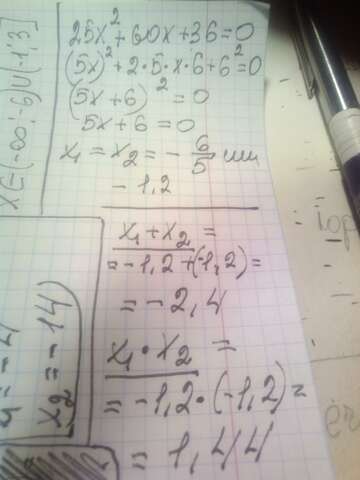 25x² + 60x + 36 = 0
(5x)² + 2·5·x·6 + 6² = 0
(5x + 6)² = 0
5x + 6 = 0
x₁ = x₂ = - 6/5 или
- 1,2
x₁ + x₂ =
= -1,2 + (-1,2) =
= -2,4
x₁ · x₂ =
= -1,2 · (-1,2) =
= 1,44
x ∈ (-∞; -6) ∪ (-1; 3]
x₂ = -14)